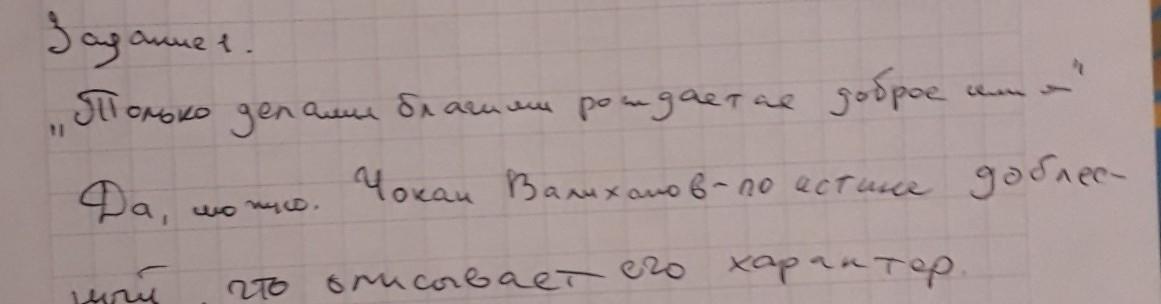 Задание 1.
„Только делами благими рождается доброе имя"
Да, можно. Чокан Валиханов-по истине доблес-
ный, что описывает его характер.